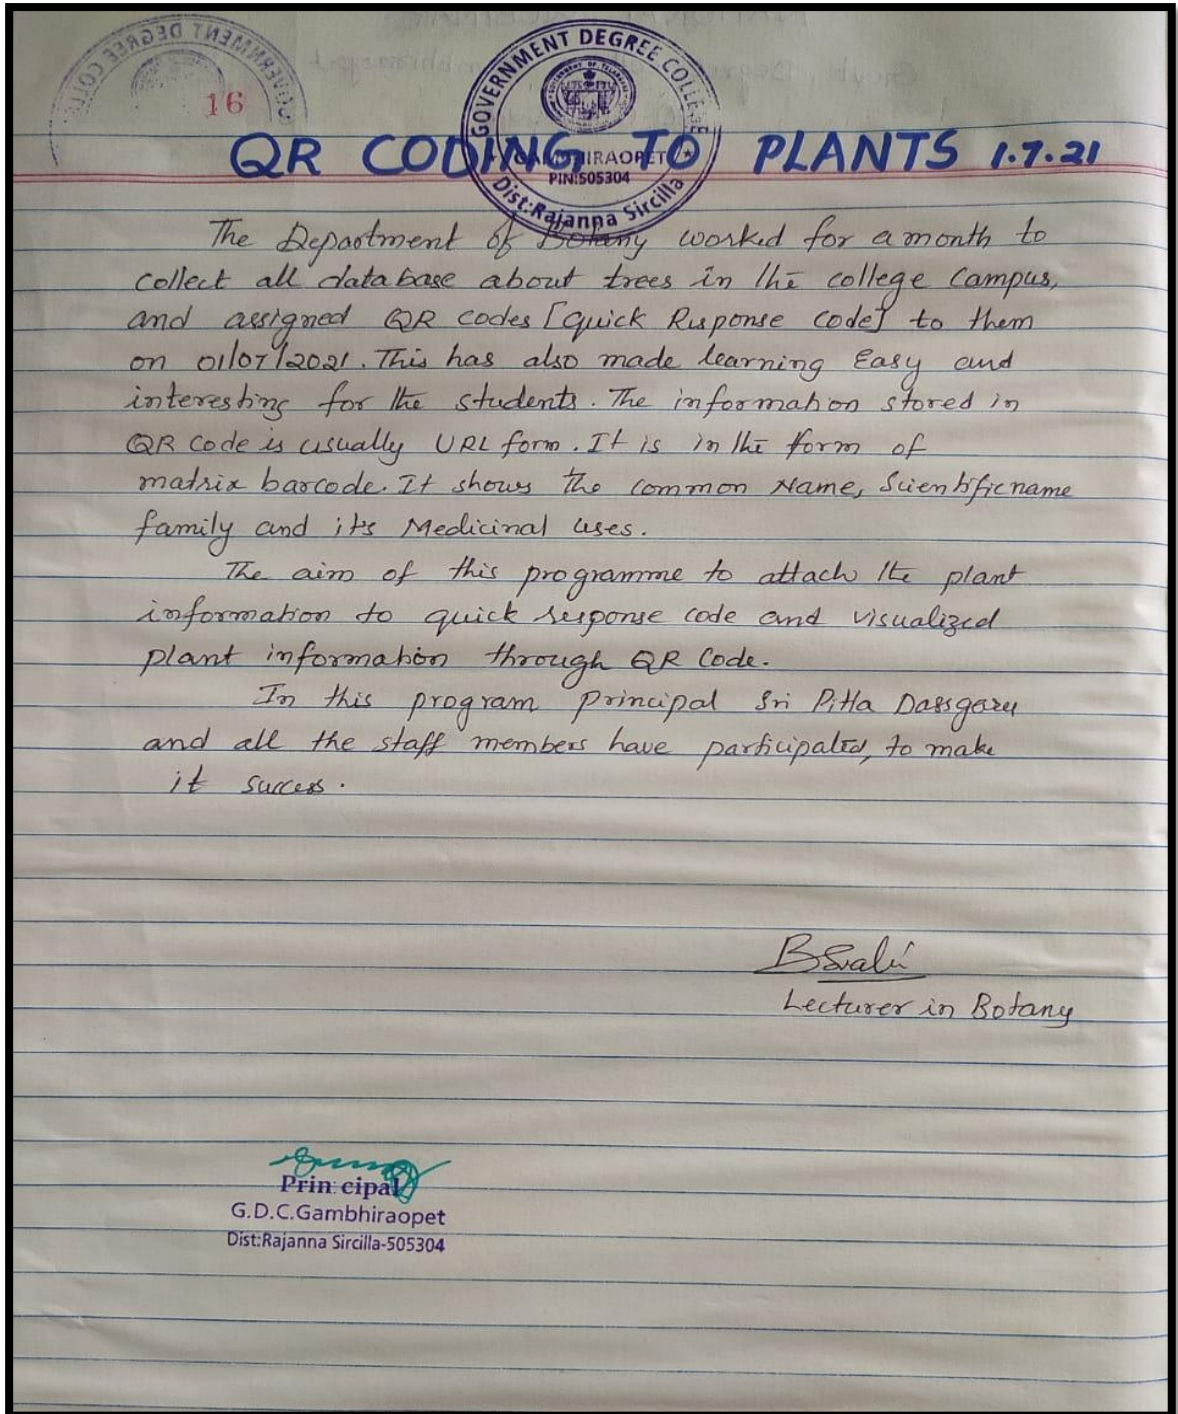 16
GOVERNMENT DEGREE COLLEGE
GAMBHIRAOPET
PIN:505304
Dist:Rajanna Sircilla
QR CODING TO PLANTS 1.7.21
The Department of Botany worked for a month to
collect all database about trees in the college campus,
and assigned QR codes [Quick Response Code] to them
on 01/07/2021. This has also made learning Easy and
interesting for the students. The information stored in
QR Code is usually URL form. It is in the form of
matrix barcode. It shows the common Name, Scientific name
family and its Medicinal uses.
The aim of this programme to attach the plant
information to quick response code and visualized
plant information through QR Code.
In this program principal Sri Pitta Dassgaru
and all the staff members have participated, to make
it success.
Lecturer in Botany
Principal
G.D.C.Gambhiraopet
Dist:Rajanna Sircilla-505304